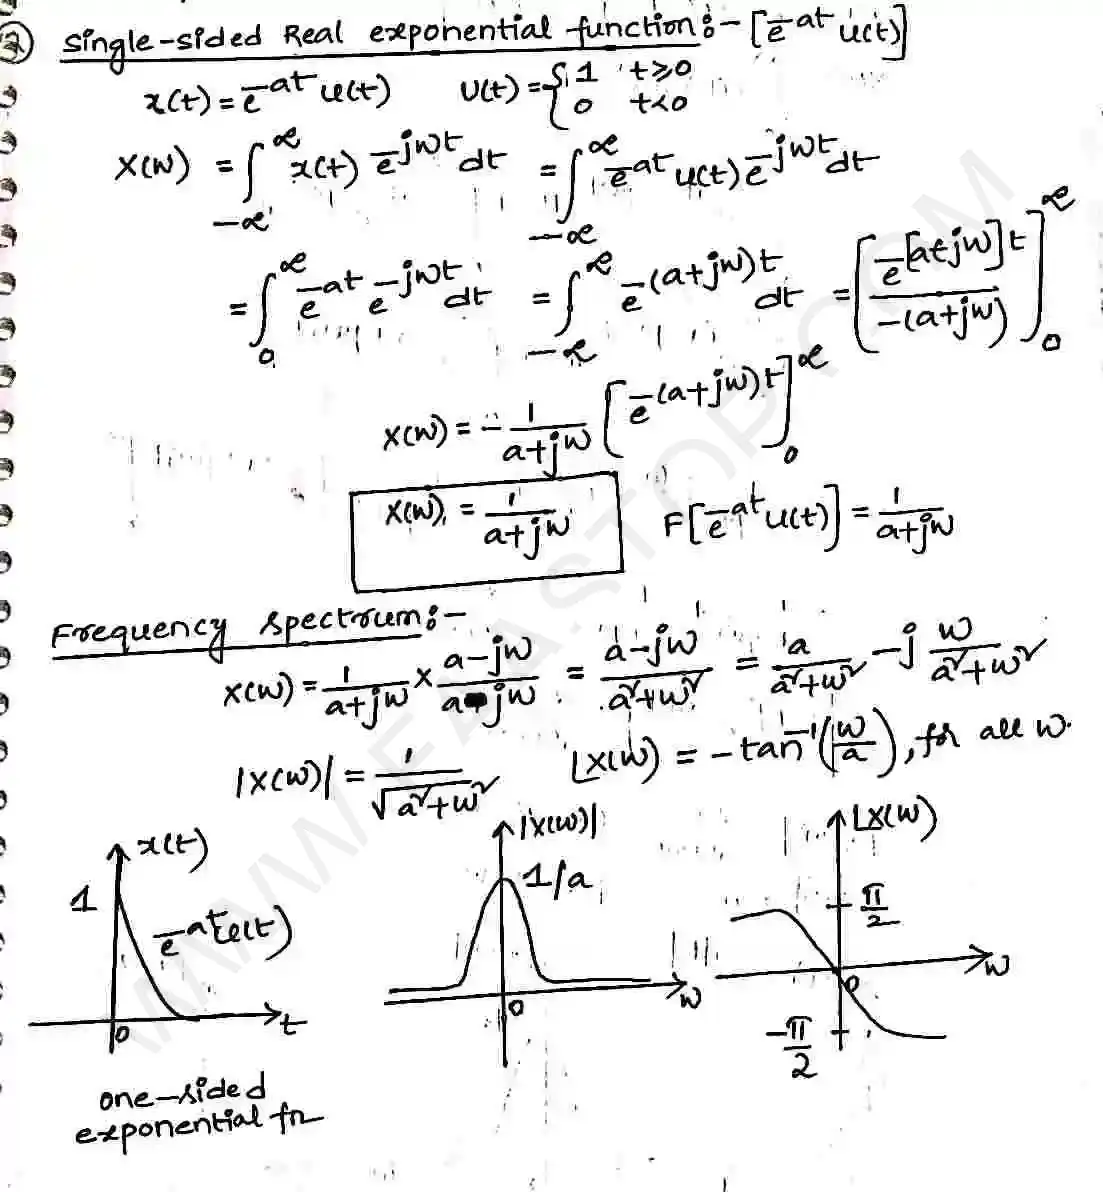 2) Single-sided Real exponential function:- [e^-at u(t)]
x(t) = e^-at u(t)   U(t) = { 1 t≥0
0 t<0
X(w) = ∫_-∞^∞ x(t) e^-jwt dt = ∫_-∞^∞ e^-at u(t) e^-jwt dt
= ∫_0^∞ e^-at e^-jwt dt = ∫_-∞^∞ e^-(a+jw)t dt = [e^-[a+jw]t / -(a+jw)]_0^∞
X(w) = - 1/(a+jw) [e^-(a+jw)t]_0^∞
X(w) = 1/(a+jw)   F[e^-at u(t)] = 1/(a+jw)
Frequency spectrum:-
X(w) = 1/(a+jw) × (a-jw)/(a-jw) = (a-jw)/(a²+w²) = a/(a²+w²) - j w/(a²+w²)
|X(w)| = 1/√(a²+w²)   ∠X(w) = -tan^-1(w/a), for all w.
x(t)
1
e^-at u(t)
0
t
one-sided
exponential fn
|X(w)|
1/a
0
w
∠X(w)
π/2
0
w
-π/2
WWW.FAASTOP.COM